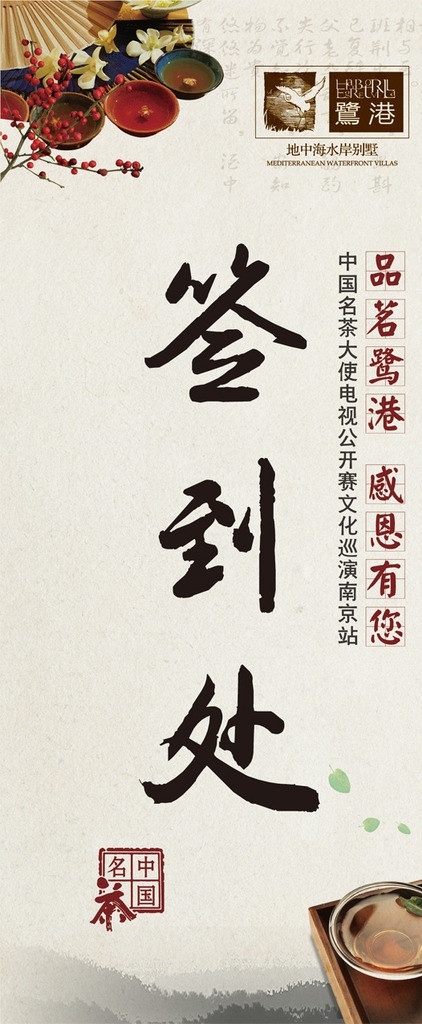 鷺港
地中海水岸别墅
MEDITERRANEAN WATERFRONT VILLAS
品茗鹭港 感恩有您
中国名茶大使电视公开赛文化巡演南京站
签到处
中国名茶